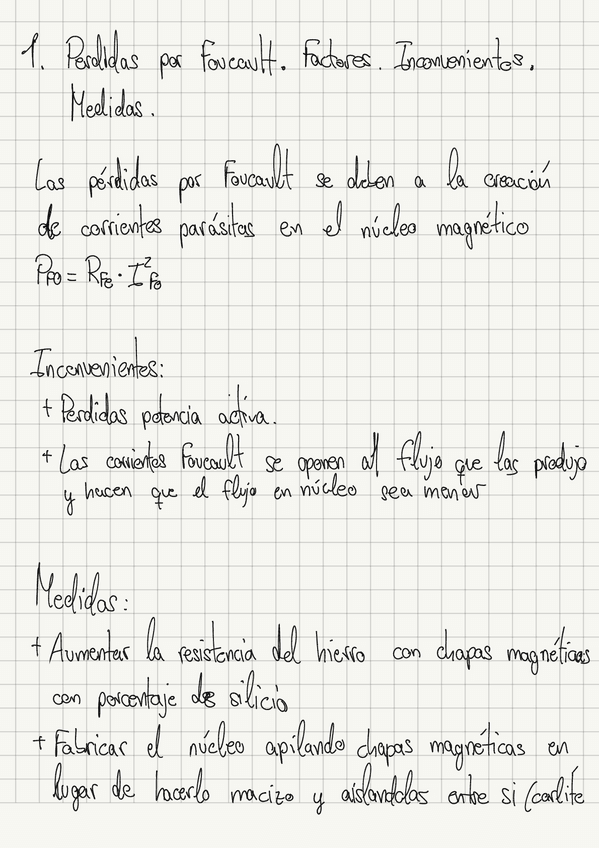 1. Perdidas por Foucault. Factores. Inconvenientes.
Medidas.
Las pérdidas por Foucault se deben a la creación
de corrientes parásitas en el núcleo magnético
PFo = RFe · I²Fo
Inconvenientes:
+ Perdidas potencia activa.
+ Las corrientes Foucault se oponen al flujo que las produjo
y hacen que el flujo en núcleo sea menor
Medidas:
+ Aumentar la resistencia del hierro con chapas magnéticas
con porcentaje de silicio
+ Fabricar el núcleo apilando chapas magnéticas en
lugar de hacerlo macizo y aislandolas entre si (carlite